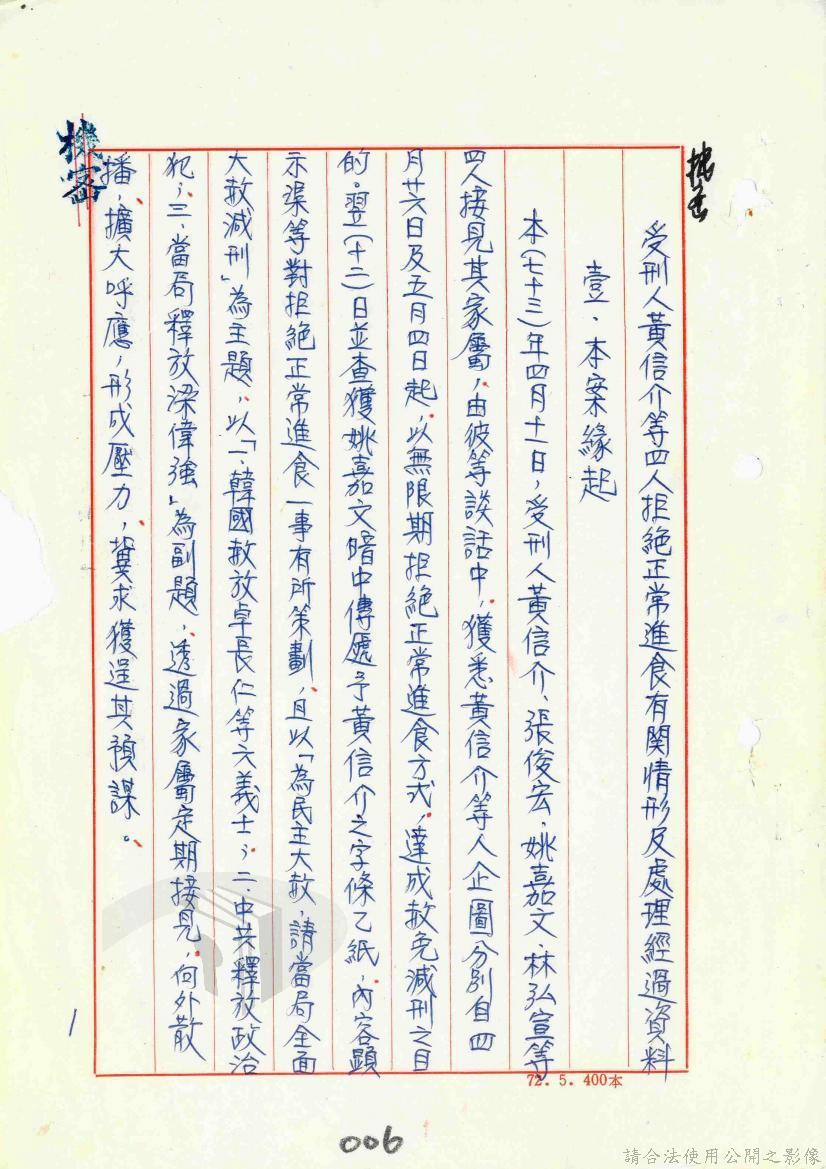 機密
受刑人黃信介等四人拒絕正常進食有関情形及處理經過資料
壹、本案緣起
本(七十三)年四月十一日，受刑人黃信介、張俊宏、姚嘉文、林弘宣等
四人接見其家屬，由彼等談話中，獲悉黃信介等人企圖分別自四
月廿六日及五月四日起，以無限期拒絕正常進食方式，達成赦免減刑之目
的。翌(十二)日並查獲姚嘉文暗中傳遞予黃信介之字條乙紙，內容顯
示渠等對拒絕正常進食一事有所策劃，且以「為民主大赦，請當局全面
大赦減刑」為主題，以「一、韓國赦放卓長仁等六義士；二、中共釋放政治
犯；三、當局釋放梁偉強」為副題，透過家屬定期接見，向外散
播，擴大呼應，形成壓力，冀求獲逞其預謀。
1
72.5.400本
006
請合法使用公開之影像